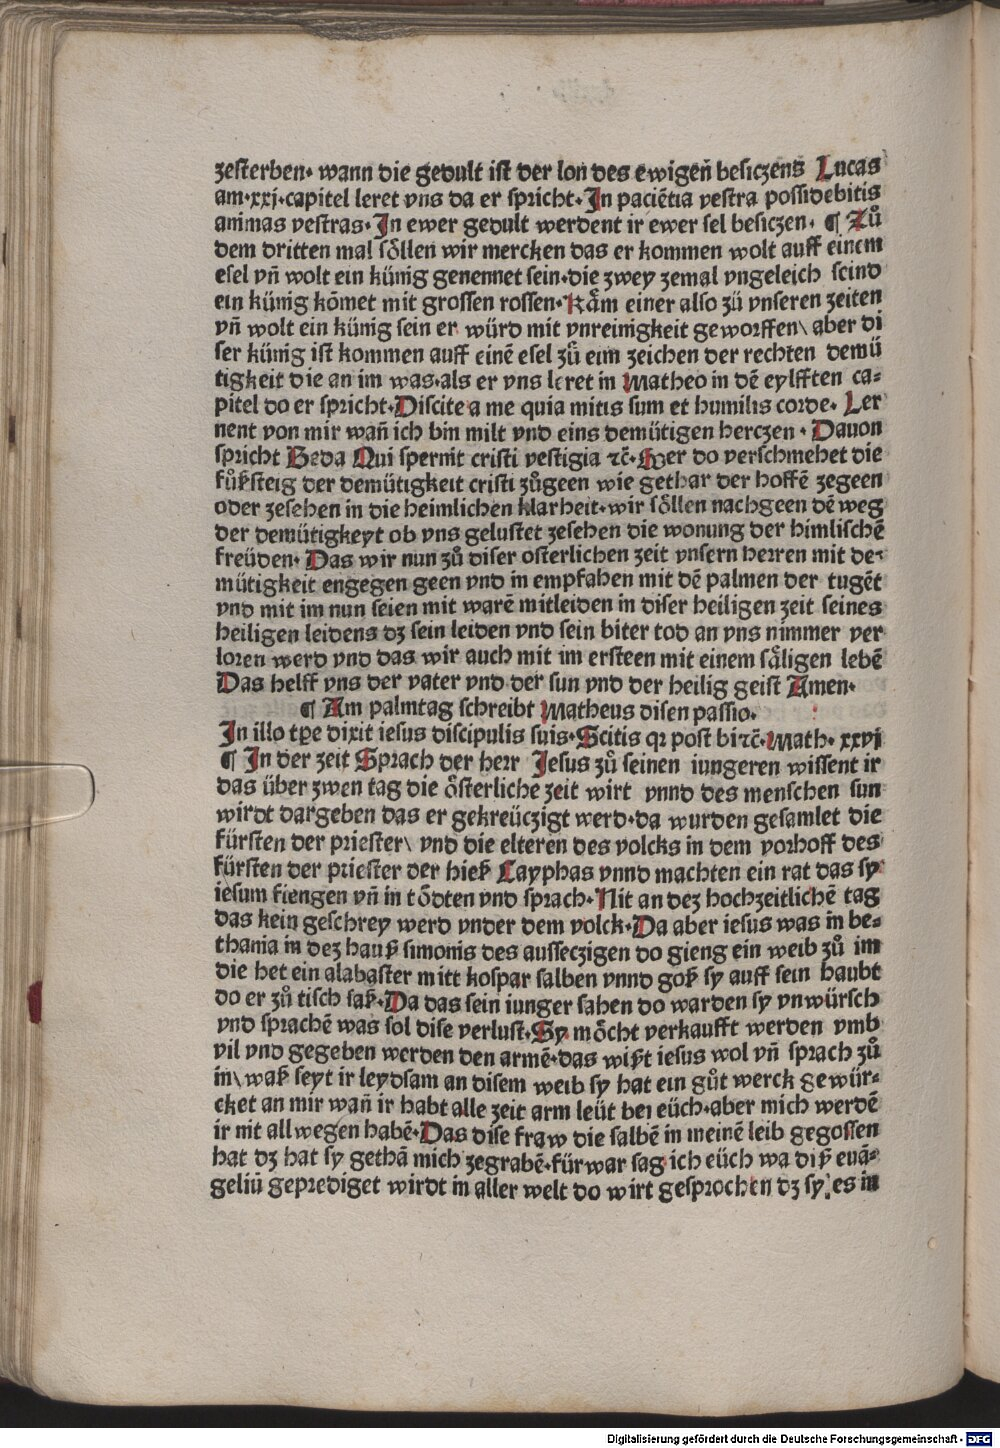 zesterben· wann die gedult ist der lon des ewigen̄ besiczens Lucas
am·xxj·capitel leret vns da er spricht·In paciētia vestra possidebitis
animas vestras·In ewer gedult werdent ir ewer sel besiczen· ¶ Zů
dem dritten mal söllen wir mercken das er kommen wolt auff einem
esel vn̄ wolt ein künig genennet sein·die zwey zemal vngeleich seind
ein künig kōmet mit grossen rossen·Käm einer also zů vnseren zeiten
vn̄ wolt ein künig sein er würd mit vnreinigkeit geworffen\ aber di
ser künig ist kommen auff einē esel zů eim zeichen der rechten demü
tigkeit die an im was·als er vns leret in Matheo in dē eylfften ca⸗
pitel do er spricht·Discite a me quia mitis sum et humilis corde· Ler
nent von mir wan̄ ich bin milt vnd eins demütigen herczen · Dauon
spricht Beda Qui spernit cristi vestigia ⁊c̄·Wer do verschmehet die
fůßsteig der demütigkeit cristi zůgeen wie gethar der hoffē zegeen
oder zesehen in die heimlichen klarheit·wir söllen nachgeen dē weg
der demütigkeyt ob vns gelustet zesehen die wonung der himlischē
freüden· Das wir nun zů diser osterlichen zeit vnsern herren mit de⸗
mütigkeit engegen geen vnd in empfahen mit dē palmen der tugēt
vnd mit im nun seien mit warē mitleiden in diser heiligen zeit seines
heiligen leidens dz sein leiden vnd sein biter tod an vns nimmer ver
loren werd vnd das wir auch mit im ersteen mit einem säligen lebē
Das helff vns der vater vnd der sun vnd der heilig geist Amen·
¶ Am palmtag schreibt Matheus disen passio·
In illo tꝑe dixit iesus discipulis suis·Scitis qꝛ post bi ⁊c̄·Math· xxvj
¶ In der zeit Sprach der herr Jesus zů seinen iungeren wissent ir
das über zwen tag die österliche zeit wirt vnnd des menschen sun
wirdt dargeben das er gekreüczigt werd·da wurden gesamlet die
fürsten der priester\ vnd die elteren des volcks in dem vorhoff des
fürsten der priester der hieß Cayphas vnnd machten ein rat das sy
iesum fiengen vn̄ in tödten vnd sprach·Nit an dez hochzeitlichē tag
das kein geschrey werd vnder dem volck·Da aber iesus was in be⸗
thania in dez hauß simonis des aussеczigen do gieng ein weib zů im
die het ein alabaster mitt kospar salben vnnd goß sy auff sein haubt
do er zů tisch saß·Da das sein iunger sahen do warden sy vnwürsch
vnd sprachē was sol dise verlust·Sy möcht verkaufft werden vmb
vil vnd gegeben werden den armē·das wißt iesus wol vn̄ sprach zů
in\ waß seyt ir leydsam an disem weib sy hat ein gůt werck gewür⸗
cket an mir wan̄ ir habt alle zeit arm leüt bei eüch·aber mich werdē
ir nit allwegen habē·Das dise fraw die salbē in meinē leib gegossen
hat dz hat sy gethā mich zegrabē·fürwar sag ich eüch wa diß euā⸗
geliū geprediget wirdt in aller welt do wirt gesprochen dz sy es in
Digitalisierung gefördert durch die Deutsche Forschungsgemeinschaft - DFG